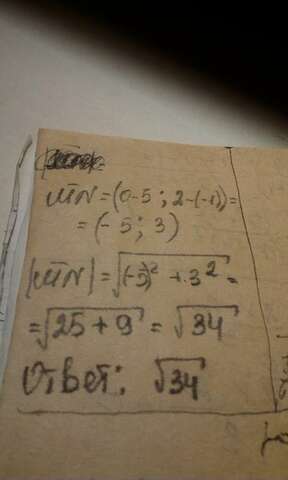 MN = (0-5; 2-(-1)) =
= (-5; 3)
|MN| = √((-5)² + 3²) =
= √(25 + 9) = √34
Ответ: √34